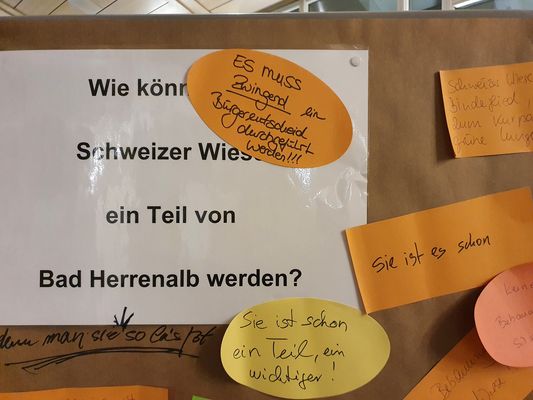 Wie könn
Schweizer Wies
ein Teil von
Bad Herrenalb werden?
ES MUSS
Zwingend ein
Bürgerentscheid
durchgeführt
werden!!!
Schweizer Wiese
Bindeglied,
zum Kurpa
grüne Lunge
Sie ist es schon
Sie ist schon
ein Teil, ein
wichtiger!
denn man sie so läs
Kein
Bebauu